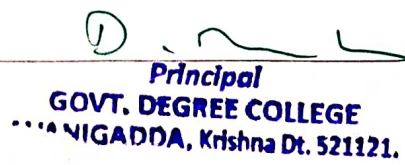 Principal
GOVT. DEGREE COLLEGE
NIGADDA, Krishna Dt. 521121.